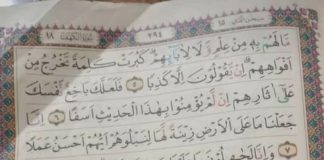 الجزء الخامس عشر ٢٩٤ سورة الكهف ١٨
مَّا لَهُم بِهِ مِنْ عِلْمٍ وَلَا لِآبَائِهِمْ كَبُرَتْ كَلِمَةً تَخْرُجُ مِنْ
أَفْوَاهِهِمْ إِن يَقُولُونَ إِلَّا كَذِبًا ٥ فَلَعَلَّكَ بَاخِعٌ نَّفْسَكَ
عَلَىٰ آثَارِهِمْ إِن لَّمْ يُؤْمِنُوا بِهَٰذَا الْحَدِيثِ أَسَفًا ٦ إِنَّا
جَعَلْنَا مَا عَلَى الْأَرْضِ زِينَةً لَّهَا لِنَبْلُوَهُمْ أَيُّهُمْ أَحْسَنُ عَمَلًا
٧ وَإِنَّا لَجَاعِلُونَ